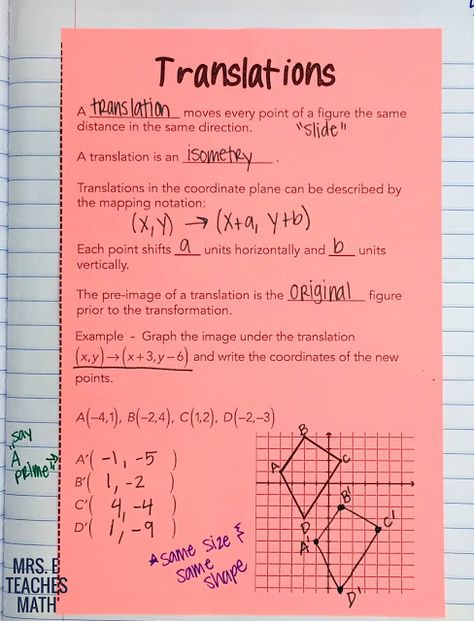 Translations
A translation moves every point of a figure the same
distance in the same direction. "slide"
A translation is an isometry.
Translations in the coordinate plane can be described by
the mapping notation:
(x,y) → (x+a, y+b)
Each point shifts a units horizontally and b units
vertically.
The pre-image of a translation is the original figure
prior to the transformation.
Example - Graph the image under the translation
(x,y)→(x+3,y−6) and write the coordinates of the new
points.
A(−4,1), B(−2,4), C(1,2), D(−2,−3)
"say
A
prime" →
A'( -1, -5 )
B'( 1, -2 )
C'( 4, -4 )
D'( 1, -9 )
*same size &
same
shape
B
A
C
D
B'
C'
A'
D'
MRS. E
TEACHES
MATH